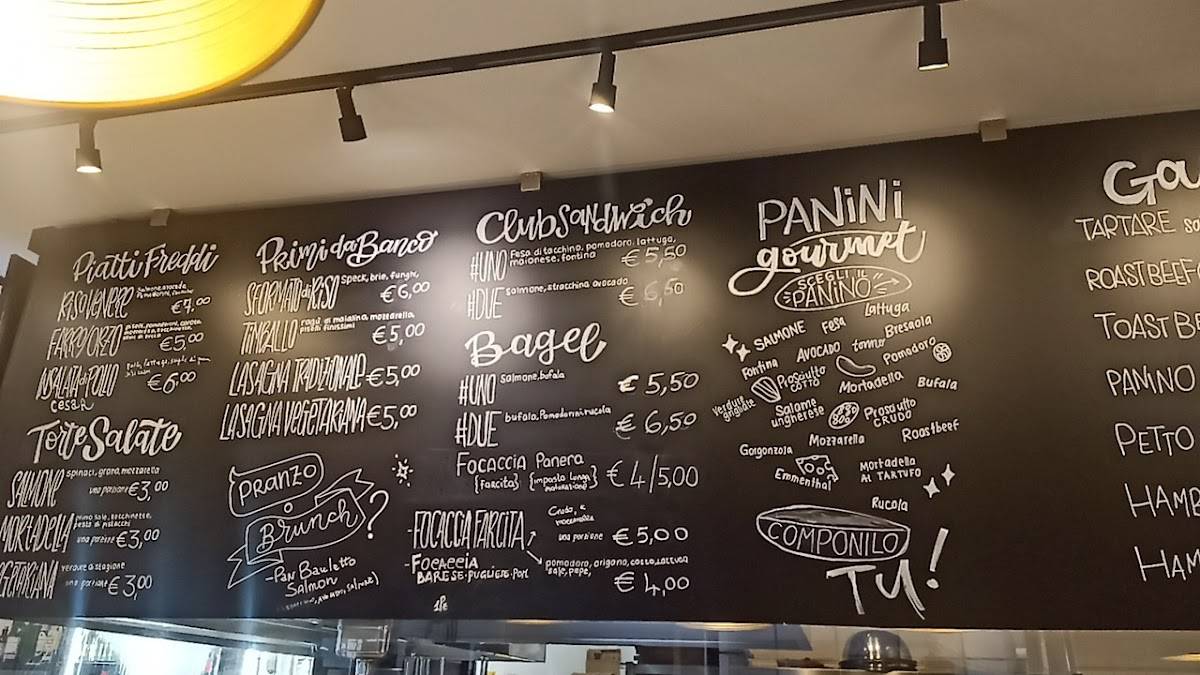 Piatti Freddi
RISO VENERE salmone, avocado,
pomodorini, €7,00
FARRO/ORZO
€5,00
INSALATA di POLLO
CESAR €6,00
Torte Salate
SALMONE spinaci, grana, mozzarella
una porzione €3,00
MORTADELLA
pesto di pistacchi
una porzione €3,00
verdure di stagione
una porzione €3,00
Primi da Banco
SFORMATO di RISO speck, brie, funghi,
€6,00
TIMBALLO ragù di maialino, mozzarella,
€5,00
LASAGNA TRADIZIONALE €5,00
LASAGNA VEGETARIANA €5,00
PRANZO
o
Brunch?
-Pan Bauletto
Salmon
Club Sandwich
#UNO Fesa di tacchino, pomodoro, lattuga,
maionese, fontina € 5,50
#DUE salmone, stracchino avocado
€ 6,50
Bagel
#UNO salmone, bufala € 5,50
#DUE bufala, Pomodorini, rucola € 6,50
Focaccia Panera
{Farcita} {impasto lunga
maturazione} € 4/5,00
-FOCACCIA FARCITA Crudo, e
mozzarella
una porzione € 5,00
-Focaccia pomodoro, origano, cotto, lattuga
BARESE-PUGLIESE-POM sale, pepe,
€ 4,00
PANINI
gourmet
SCEGLI IL
PANINO
Lattuga
SALMONE Fesa Bresaola
Fontina AVOCADO tonno Pomodoro
Prosciutto
COTTO Mortadella Bufala
Verdure
grigliate Salame
ungherese Prosciutto
CRUDO
Mozzarella Roastbeef
Gorgonzola
Emmenthal Mortadella
AL TARTUFO
Rucola
COMPONILO
TU!
TARTARE
ROASTBEEF
TOAST
PANINO
PETTO
HAM
HAM